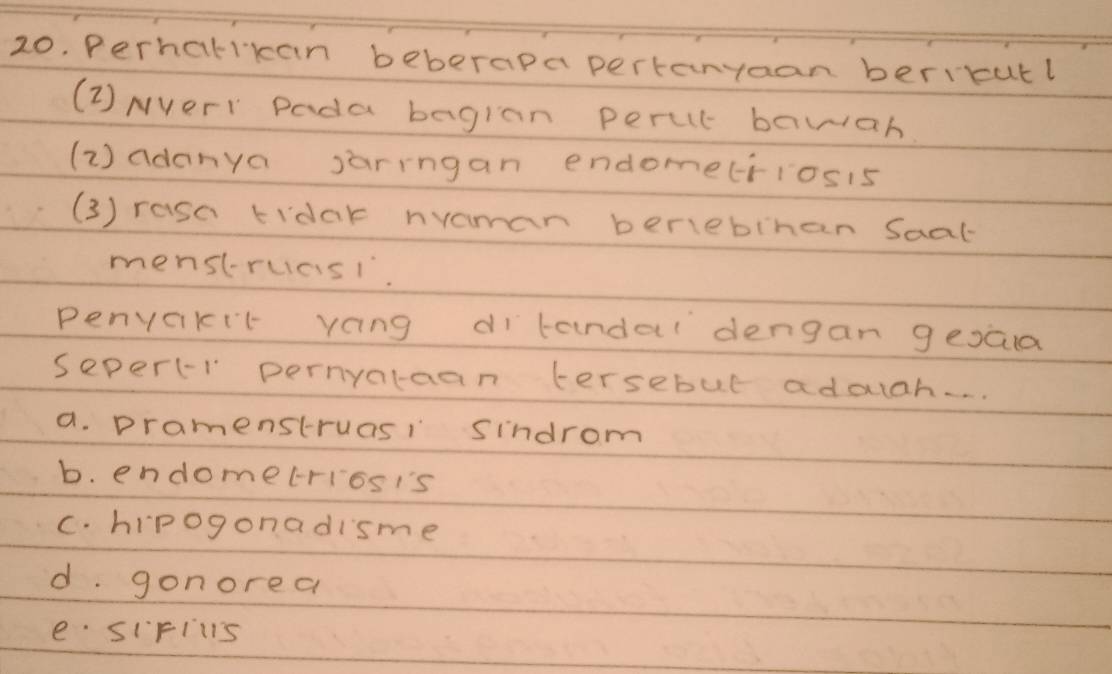 20. Perhatikan beberapa pertanyaan berikut!
(1) Nyeri Pada bagian perut bawah.
(2) adanya jaringan endometriosis
(3) rasa tidak nyaman berlebihan saat
menstruasi.
penyakit yang di tandai dengan gejala
seperti pernyataan tersebut adalah...
a. pramenstruasi sindrom
b. endometriosis
c. hipogonadisme
d. gonorea
e. sifilis